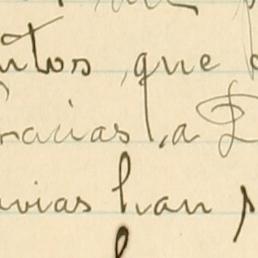 ntos, que
racias, a D
uvias han